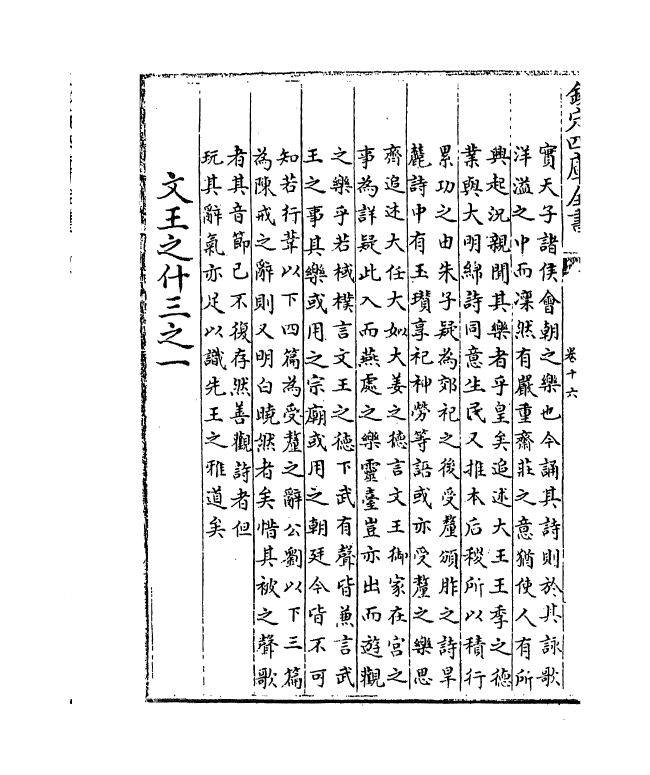 欽定四庫全書
卷十六
實天子諸侯會朝之樂也今誦其詩則於其詠歌
洋溢之中而凜然有嚴重齋莊之意猶使人有所
興起況親聞其樂者乎皇矣追述大王王季之德
業與大明綿詩同意生民又推本后稷所以積行
累功之由朱子疑為郊祀之後受釐頒胙之詩旱
麓詩中有玉瓚享祀神勞等語或亦受釐之樂思
齊追述大任大姒大姜之德言文王御家在宮之
事為詳疑此入而燕處之樂靈臺豈亦出而遊觀
之樂乎若棫樸言文王之德下武有聲皆兼言武
王之事其樂或用之宗廟或用之朝廷今皆不可
知若行葦以下四篇為受釐之辭公劉以下三篇
為陳戒之辭則又明白曉然者矣惜其被之聲歌
者其音節已不復存然善觀詩者但
玩其辭氣亦足以識先王之雅道矣
文王之什三之一